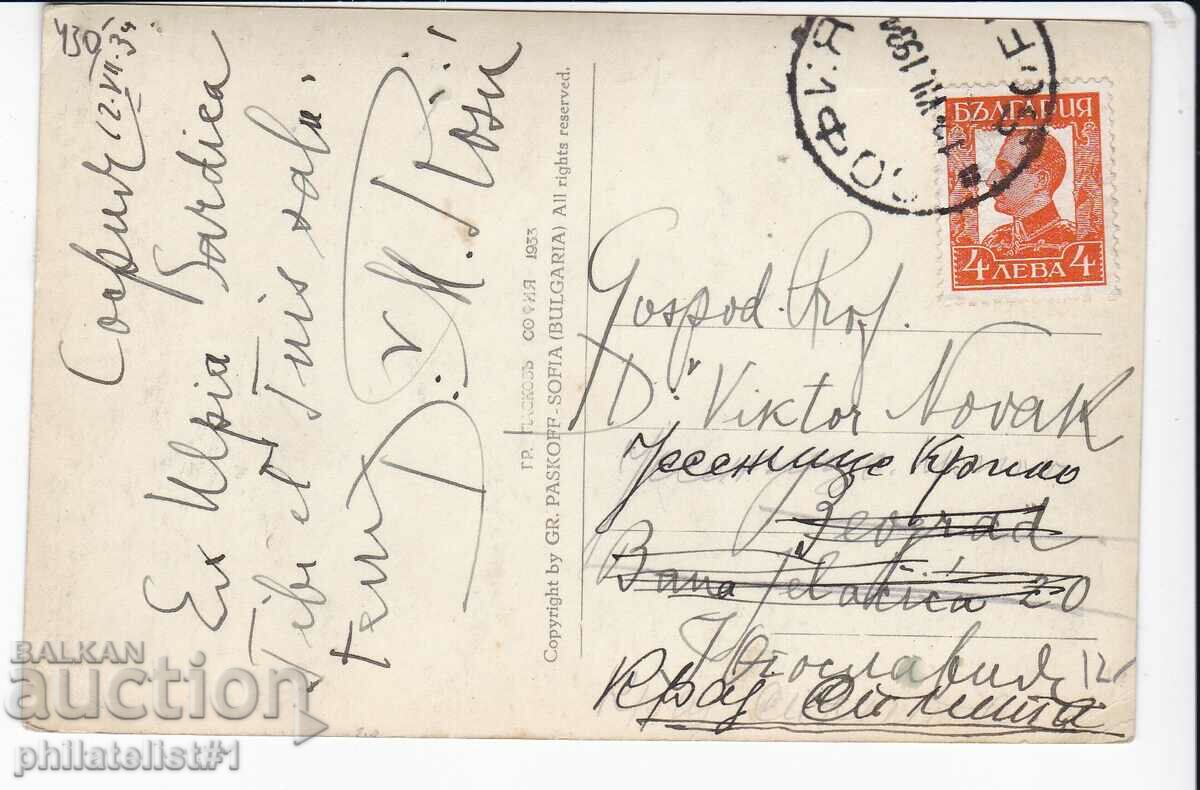 430
София 12.VII.34
Ex Ulpia Serdica
Tibi et Tuis salu-
tem
D.r M.
ГР. ПАСКОВЪ СОФИЯ 1933
Copyright by GR. PASKOFF-SOFIA (BULGARIA) All rights reserved.
СОФИЯ
12.VII.1934
БЪЛГАРИЯ
4 ЛЕВА 4
Gospod. Prof.
D.r Viktor Novak
Јесенице Крило
Beograd
Bana Jelačića 20
Југославия
крај Сплита
BALKAN
auction
philatelist#1